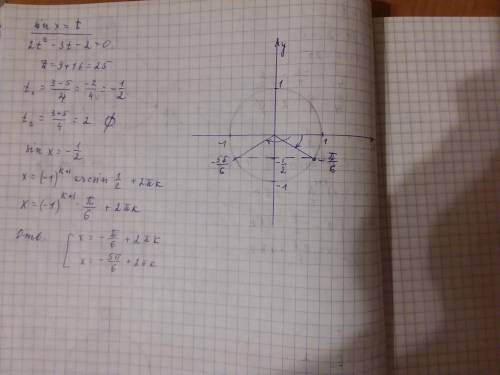 sin x = t
2t² - 3t - 2 = 0
D = 9 + 16 = 25
t₁ = (3-5)/4 = -2/4 = -1/2
t₂ = (3+5)/4 = 2 ∅
sin x = -1/2
x = (-1)^(k+1) arcsin 1/2 + 2πk
x = (-1)^(k+1) · π/6 + 2πk
Отв.
{ x = -π/6 + 2πk
x = -5π/6 + 2πk
y
1
-1
1
-5π/6
-1/2
-π/6
-1